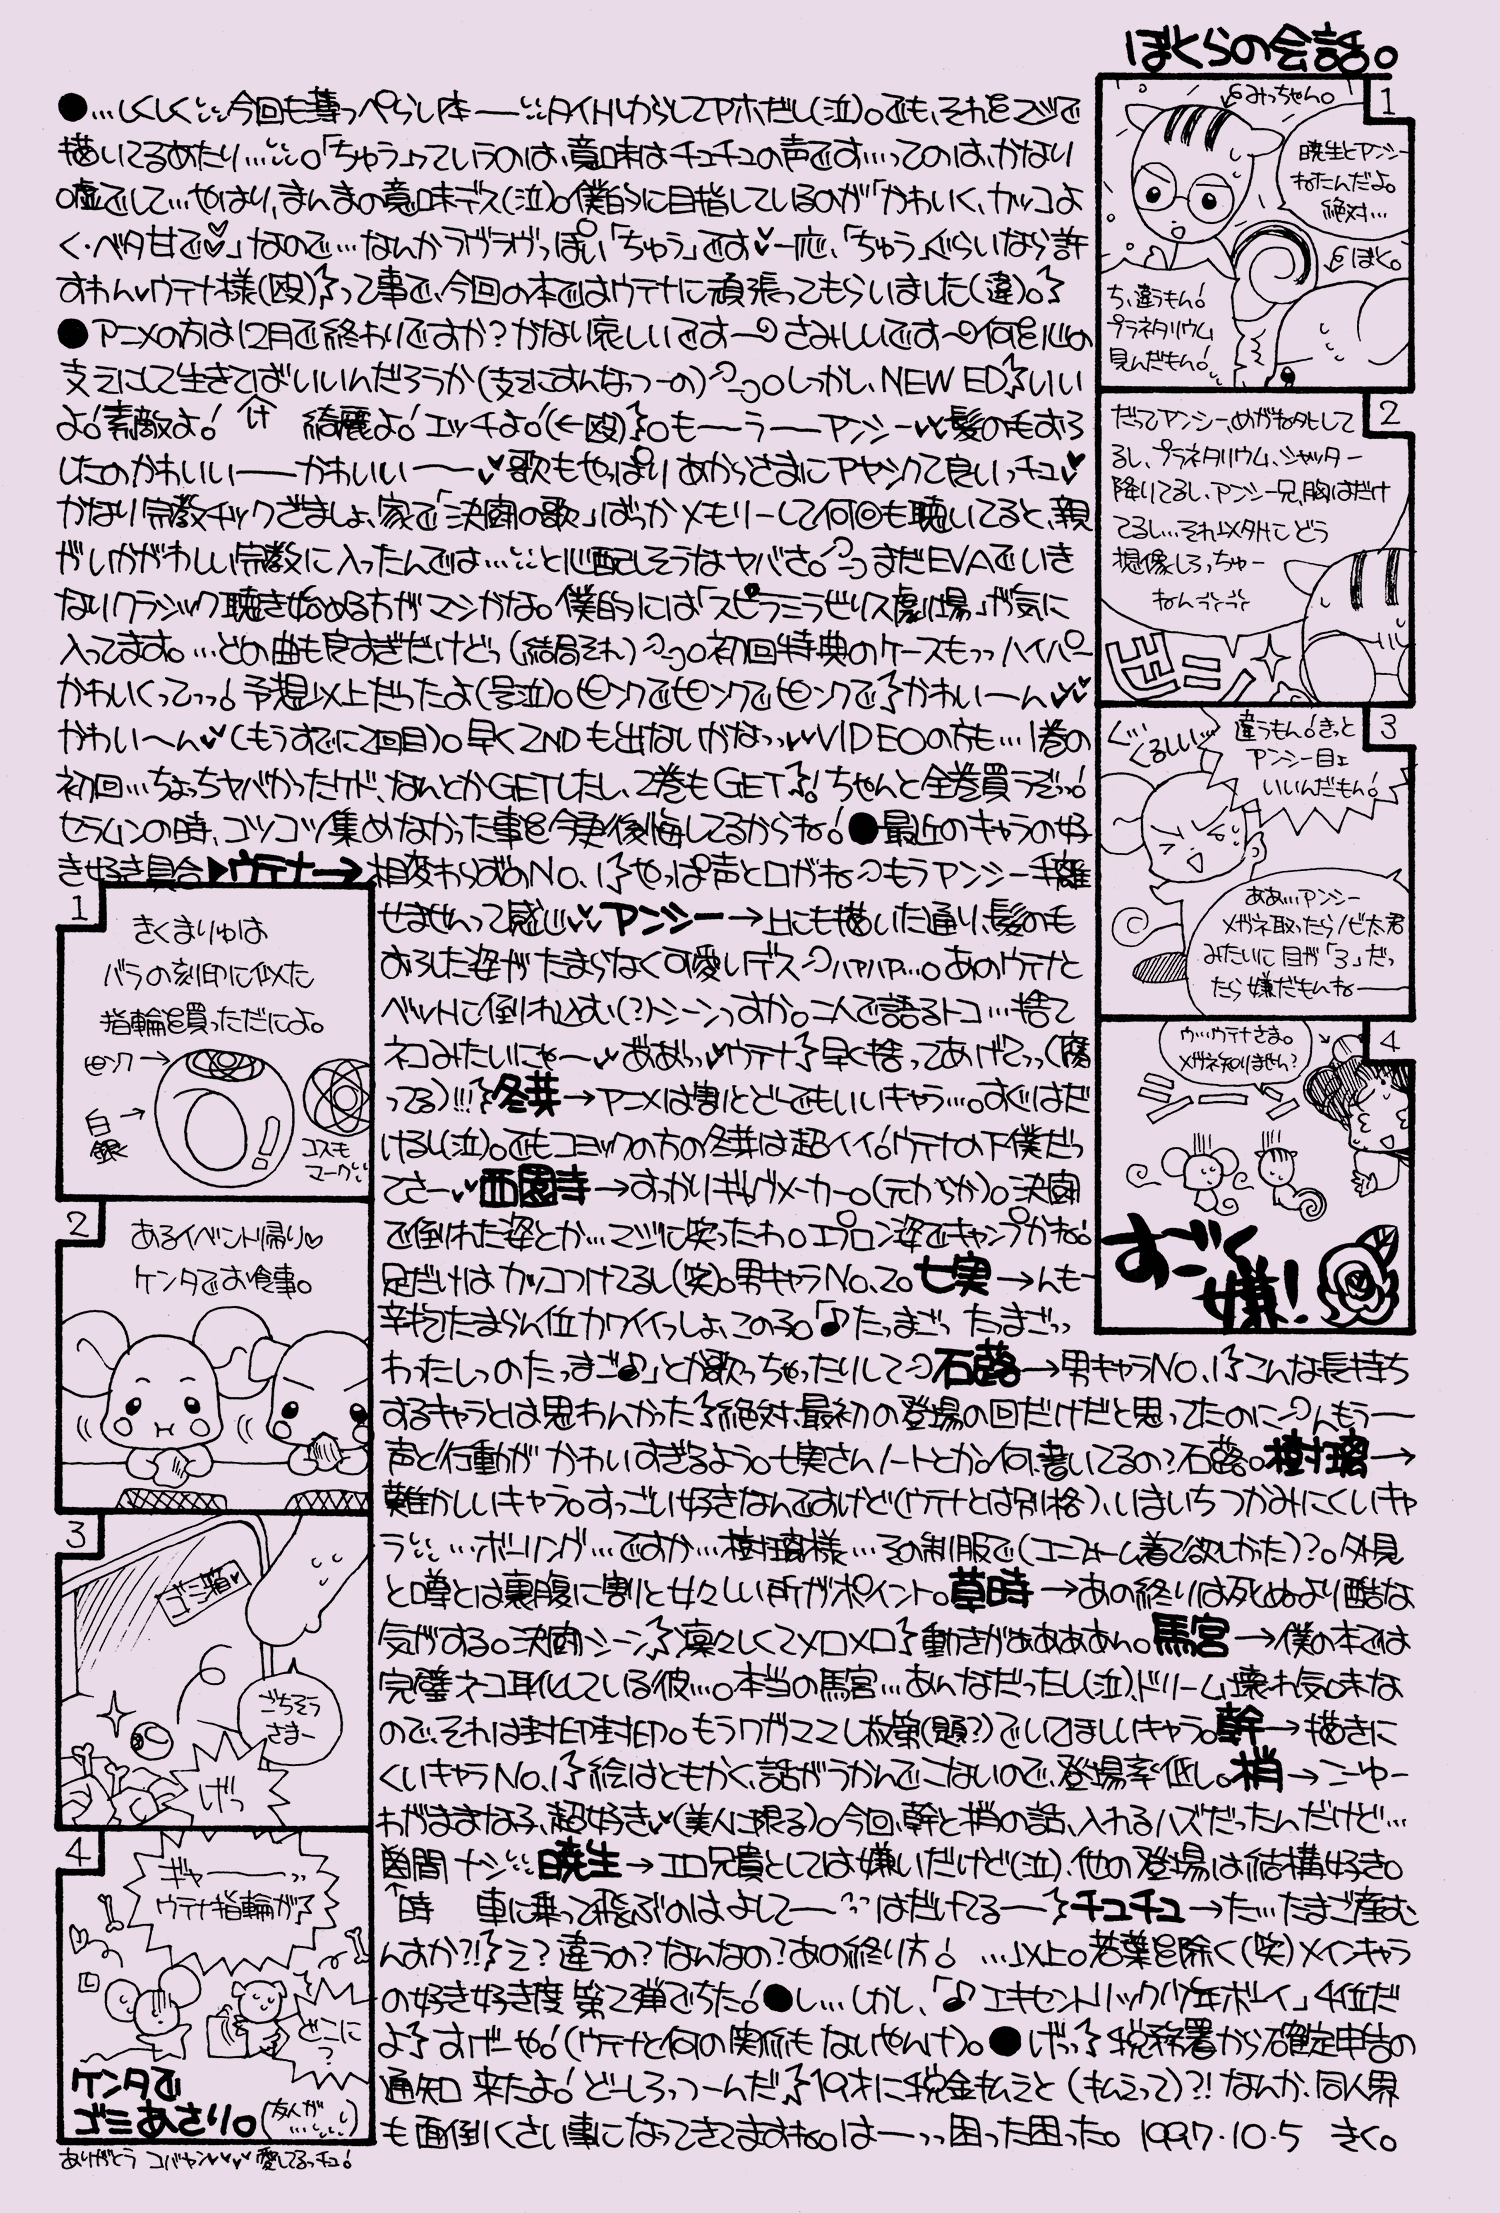 ぼくらの会話。
●…しくしく…今回も薄っぺらし本ー…タイトルからしてアホだし(泣)。でも、それをマジで
描いてるあたり……。「ちゅう」っていうのは、意味はチュチュの声です…ってのは、かなり
嘘でして…やはり、まんまの意味デス(泣)。僕的に目指しているのが「かわいく、カッコよ
く・ベタ甘で♥」なので…なんかラヴラヴっぽい「ちゅう」です♥一応、「ちゅう」ぐらいなら許
すわん♥ウテナ様(殴)って事で、今回の本ではウテナに頑張ってもらいました(違)。
●アニメの方は12月で終わりですか?かなり哀しいです〜さみしいです〜何を心の
支えにして生きてばいいんだろうか(支えにすんなっつーの)。しっかし、NEW EDいい
け
よ!素敵よ! 綺麗よ!エッチよ!(←殴)。もーーうーーアンシー♥♥髪の毛おろ
したのかわいいーーかわいいー〜♥歌もやっぱりあからさまにアヤシクて良いっチュ♥
かなり宗教チックざましょ、家で「決闘の歌」ばっかメモリーして何回も聴いてると、親
がいかがわしい宗教に入ったんでは……と心配しそうなヤバさ。まだEVAでいき
なりクラシック聴き始める方がマシかな。僕的には「スピラミラビリス劇場」が気に
入ってます。…どの曲も良すぎだけどっ(結局それ)。初回特典のケースもっっハイパー
かわいくってっっ!予想以上だったよ(号泣)。ピンクでピンクでピンクでかわいーん♥♥
かわい〜ん♥(もうすでに2回目)。早く2NDも出ないかなっっ♥♥VIDEOの方も…1巻の
初回…ちょっちヤバかったケド、なんとかGETしたし、2巻もGET!ちゃんと全巻買うぞっ!
セラムンの時、コツコツ集めなかった事を今更後悔してるからね!●最近のキャラの好
き好き具合▶ウテナ→相変わらずのNo.1やっぱ声と口がねもうアンシー手離
せませんって感じ♥♥アンシー→上にも描いた通り、髪の毛
おろした姿がたまらなく可愛いデスハァハァ…。あのウテナと
ベットに倒れ込む(?)シーンっすか。二人で語るトコ…捨て
ネコみたいにゃ〜♥ああっっ♥ウテナ早く捨ってあげてっっ(腐
ってる)!!!冬芽→アニメは割とどーでもいいキャラ…。すぐはだ
けるし(泣)。でもコミックの方の冬芽は超イイ!ウテナの下僕だっ
てさー♥西園寺→すっかりギャグメーカー。(元からか)。決闘
で倒れた姿とか…マジに笑ったわ。エプロン姿でキャンプかね!
足だけはカッコつけてるし(笑)。男キャラNo.2。七実→んもー
辛抱たまらん位カワイイっしょ、この子。「♪たっまごっ たっまごっっ
わったしっのたっまご♪」とか歌っちゃったりして石蕗→男キャラNo.1こんな長持ち
するキャラとは思わんかった絶対、最初の登場の回だけだと思ってたのにんもうーー
声と行動がかわいすぎるよう。七実さんノートとか。何、書いてるの?石蕗。樹璃→
難かしいキャラ。すっごい好きなんですけど(ウテナとは別格)、いまいちつかみにくいキャ
ラ……ボーリング…ですか…樹璃様…その制服で(ユニフォーム着て欲しかった)?。外見
と噂とは裏腹に割りと女々しい所がポイント。草時→あの終りは死ぬより酷な
気がする。決闘シーン凛々しくてメロメロ動きがああああん。馬宮→僕の本では
完璧ネコ耳化している彼…。本当の馬宮…あんなだったし(泣)、ドリーム壊れ気味な
ので、それは封印封印。もうワガママし放第(題?)でいてほしいキャラ。幹→描きに
くいキャラNo.1絵はともかく、話がうかんでこないので、登場率低し。梢→こーゆー
わがままな子、超好き♥(美人に限る)。今回、幹と梢の話、入れるハズだったんだけど…
間ナシ…暁生→エロ兄貴としては嫌いだけど(泣)、他の登場は結構好き。
↑時 車に乗って飛ぶのはよしてー…はだけてるーーチュチュ→た…たまご産む
んすか?!え?違うの?なんなの?あの終り方! …以上。若葉を除く(笑)メインキャラ
の好き好き度第2弾でちた!●し…しかし、「♪エキセントリック少年ボーイ」4位だ
よすげーや!(ウテナと何の関係もないやんけ)。●げっっ税務署から確定申告の
通知来たよ!どーしろっつーんだ19才に税金払えと(払えって)?!なんか、同人界
も面倒くさい事になってきてますね。はーっっ困った困った。1997・10・5 きく。
1
みっちゃん。
暁生とアンシー
ねたんだよ。
絶対…
ぼく。
ち、違うもん!
プラネタリウム
見んだもん!
2
だってアンシー、めがね外して
るし、プラネタリウム、シャッター
降りてるし、アンシー兄、胸はだけ
てるし…それ以外にどう
想像しろっちゅー
ねんっ
3
ぐ…
くるしい…
違うもん!きっと
アンシー目ェ
いいんだもん!
ああ…アンシー
メガネ取ったらノビ太君
みたいに目が「3」だっ
たら嫌だもんねーー
4
ウ…ウテナさま。
メガネ知りません?
すーごく
嫌!
1
きくまりゅは
バラの刻印に似た
指輪を買っただによ。
ピンク→
白銀→
コスモ
マーク
2
あるイベント帰り♥
ケンタでお食事。
3
ゴミ箱♥
ごちそう
さまー
げっ
4
ギャーーっっ
ウテナ指輪が
どこに
?
ケンタで
ゴミあさり。(友人が……)
ありがとう コバヤン♥♥♥愛してるっチュ!